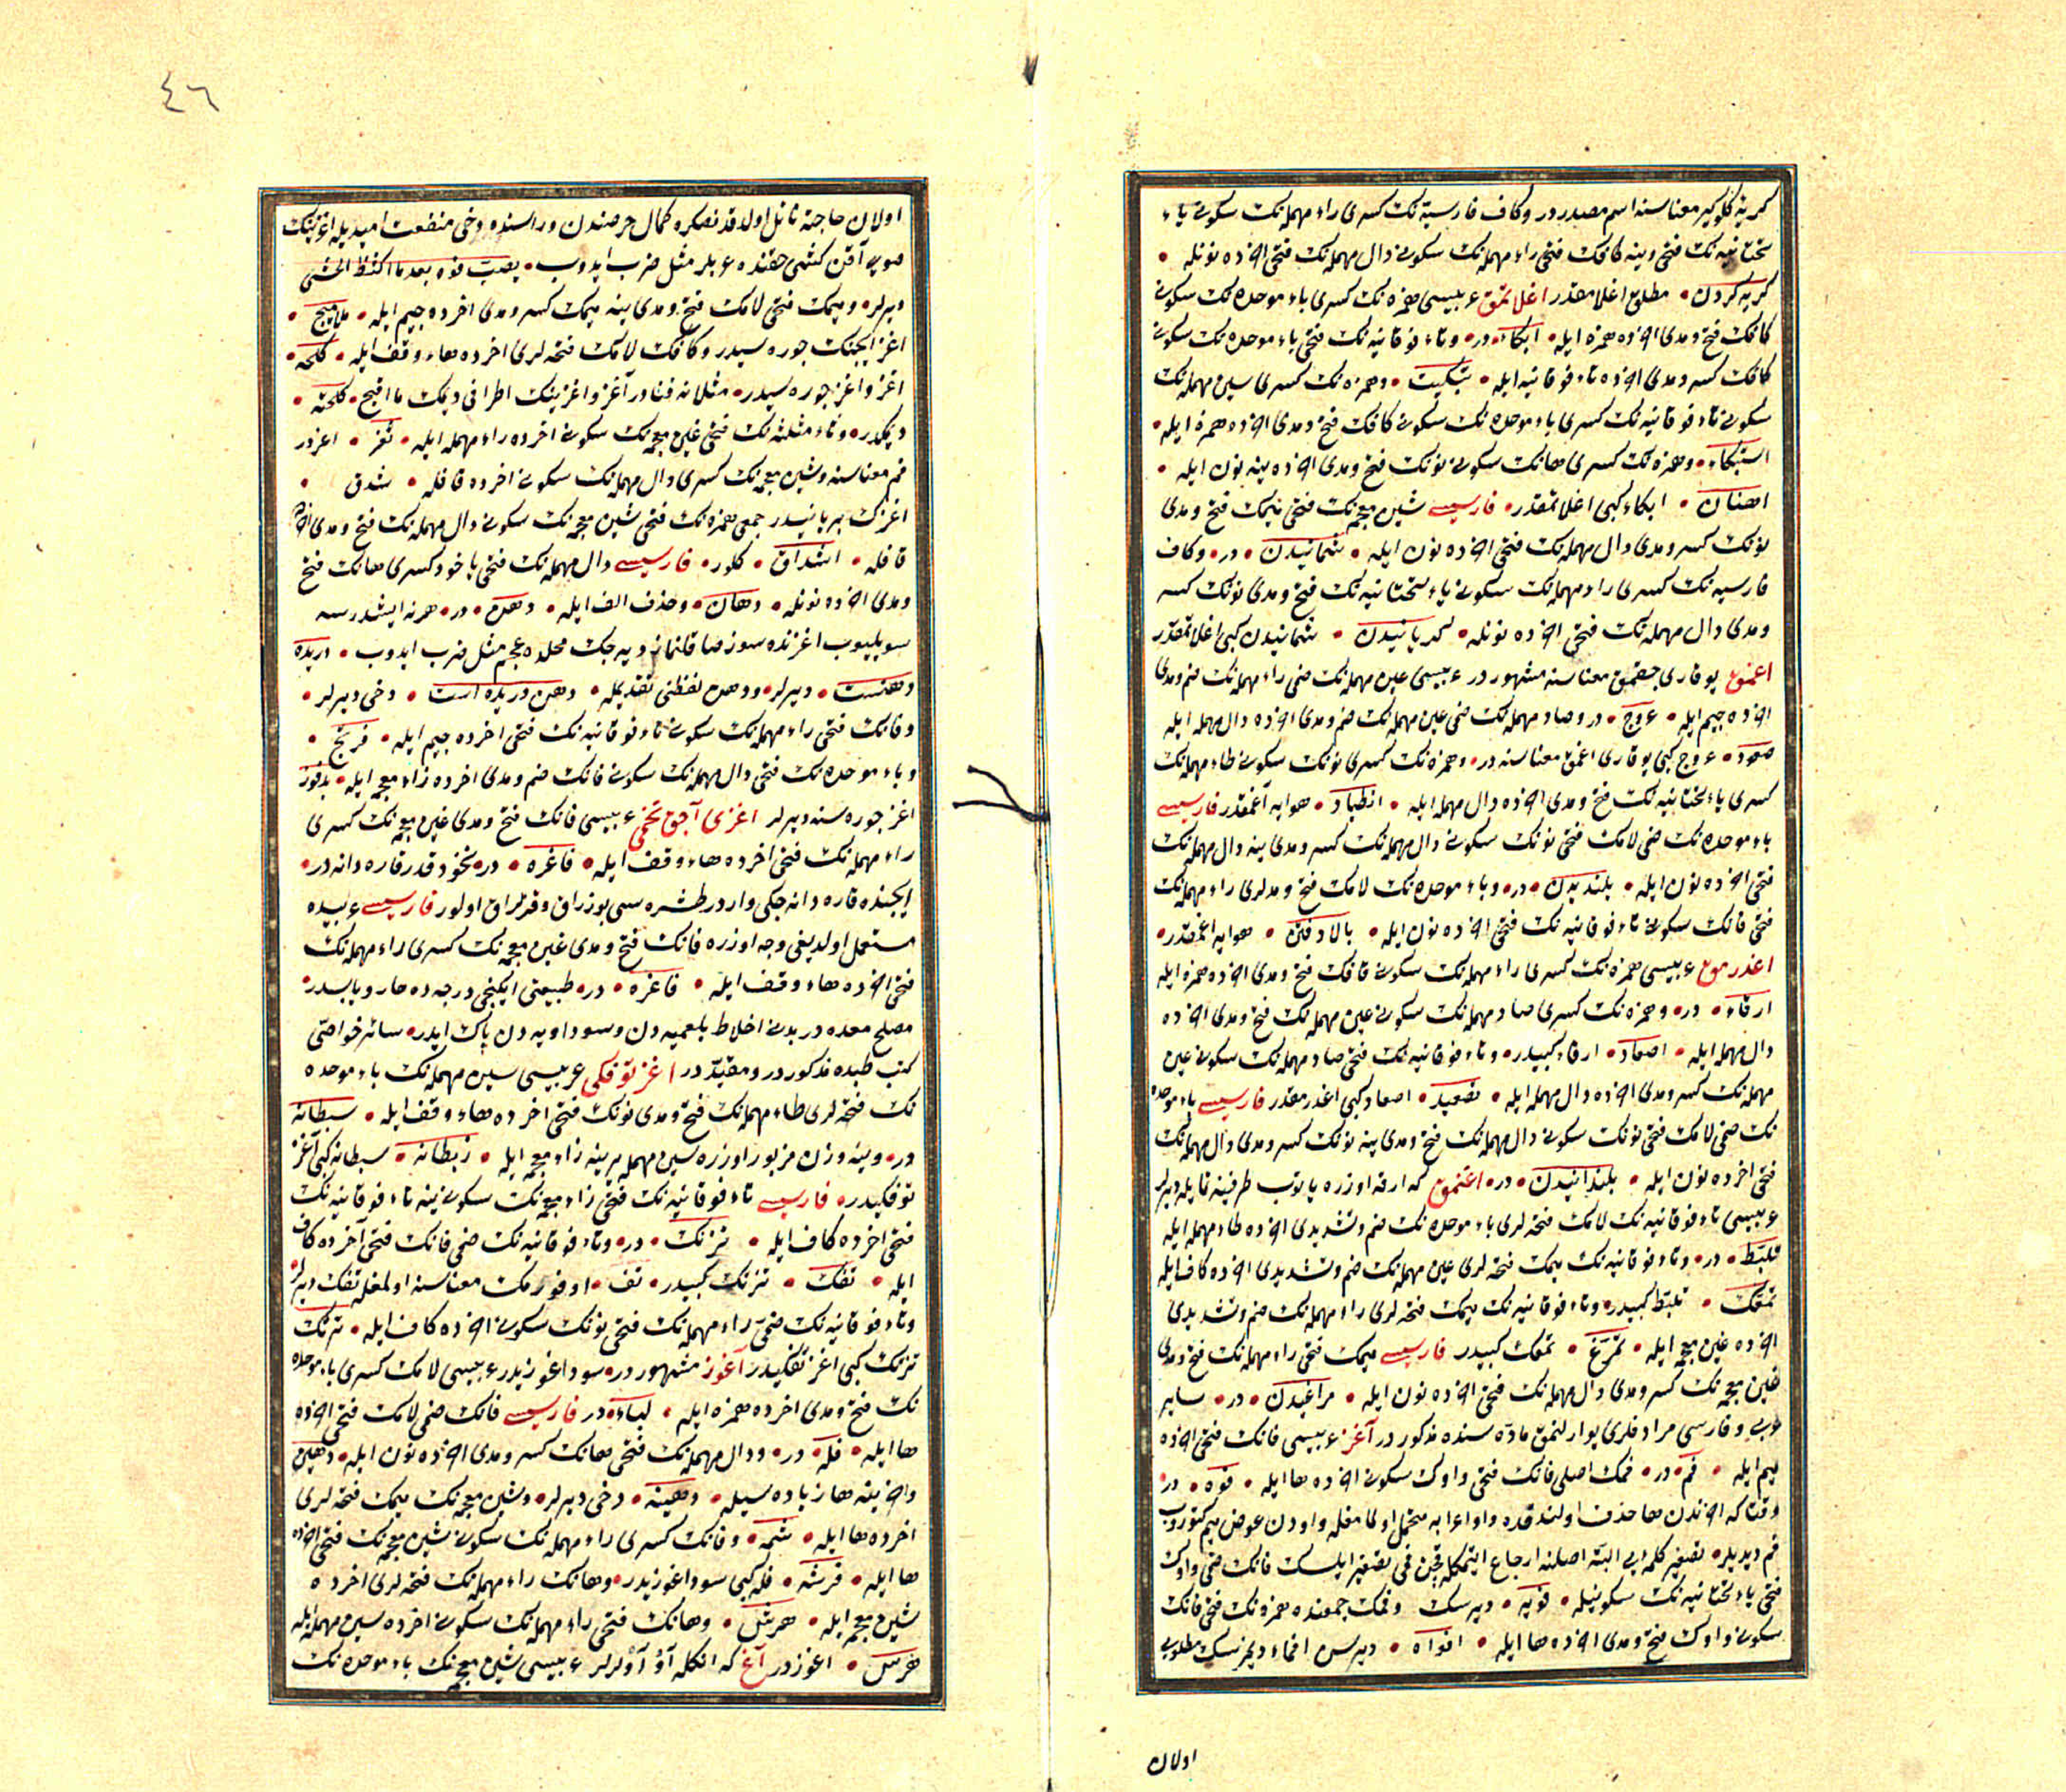 كريه كلوكير معناسنه اسم مصدردر وكاف فارسيه نك كسرى راء مهمله نك سكونى ياء
تحتانيه نك فتحى وينه كافك فتحى راء مهمله نك سكونى دال مهمله نك فتحى اخرده نونله •
كريه كردن • مطلق اغلامقدر اغلاتمق عربيسى همزه نك كسرى باء موحده نك سكونى
كافك فتح ومدى اخرده همزه ايله • ابكاء • در • وتاء فوقانيه نك فتحى باء موحده نك سكونى
كافك كسر ومدى اخرده تاء فوقانيه ايله • تبكيت • وهمزه نك كسرى سين مهمله نك
سكونى تاء فوقانيه نك كسرى باء موحده نك سكونى كافك فتح ومدى اخرده همزه ايله •
استبكاء • وهمزه نك كسرى هانك سكونى نونك فتح ومدى اخرده ينه نون ايله •
اهنان • ابكاء كبى اغلاتمقدر • فارسيسى شين معجمه نك فتحى ميمك فتح ومدى
نونك كسر ومدى دال مهمله نك فتحى اخرده نون ايله • شمانيدن • در • وكاف
فارسيه نك كسرى راء مهمله نك سكونى ياء تحتانيه نك فتح ومدى نونك كسر
ومدى دال مهمله نك فتحى اخرده نونله • كريانيدن • شمانيدن كبى اغلاتمقدر
اغمق يوقارى چقمق معناسنه مشهوردر عربيسى عين مهمله نك ضمى راء مهمله نك ضم ومدى
اخرده جيم ايله • عروج • در وصاد مهمله نك ضمى عين مهمله نك ضم ومدى اخرده دال مهمله ايله
صعود • عروج كبى يوقارى اغمق معناسنه در • وهمزه نك كسرى نونك سكونى طاء مهمله نك
كسرى ياء تحتانيه نك فتح ومدى اخرده دال مهمله ايله • انطياد • هوايه آغمقدر فارسيسى
باء موحده نك ضمى لامك فتحى نونك سكونى دال مهمله نك كسر ومدى ينه دال مهمله نك
فتحى اخرده نون ايله • بلنديدن • در • وباء موحده نك لامك فتح ومدلرى راء مهمله نك
فتحى فانك سكونى تاء فوقانيه نك فتحى اخرده نون ايله • بالارفتن • هوايه اغمقدر •
اغدرمق عربيسى همزه نك كسرى راء مهمله نك سكونى قافك فتح ومدى اخرده همزه ايله
ارقاء • در • وهمزه نك كسرى صاد مهمله نك سكونى عين مهمله نك فتح ومدى اخرده
دال مهمله ايله • اصعاد • ارقاء كبيدر • وتاء فوقانيه نك فتحى صاد مهمله نك سكونى عين
مهمله نك كسر ومدى اخرده دال مهمله ايله • تصعيد • اصعاد كبى اغدرمقدر فارسيسى باء موحده
نك ضمى لامك فتحى نونك سكونى دال مهمله نك فتح ومدى ينه نونك كسر ومدى دال مهمله نك
فتحى اخرده نون ايله • بلندانيدن • در • اغنمق كه ارقه اوزره ياتوب طرفينه قاپله ديرلر
عربيسى تاء فوقانيه نك لامك فتحه لرى باء موحده نك ضم وتشديدى اخرده طاء مهمله ايله
تلبّط • در • وتاء فوقانيه نك ميمك فتحه لرى عين مهمله نك ضم وتشديدى اخرده كاف ايله
تمعّك • تلبّط كبيدر • وتاء فوقانيه نك ميمك فتحه لرى راء مهمله نك ضم وتشديدى
اخرده غين معجمه ايله • تمرّغ • تمعك كبيدر فارسيسى ميمك فتحى راء مهمله نك فتح ومدى
غين معجمه نك كسر ومدى دال مهمله نك فتحى اخرده نون ايله • مراغيدن • در • ساير
عربى وفارسى مرادفلرى يوارلنمق ماده سنده مذكوردر آغز عربيسى فانك فتحى اخرده
ميم ايله • فم • در • فمك اصلى فانك فتحى واوك سكونى اخرده ها ايله • فوه • در
وقتا كه اخرندن ها حذف اولندقده واو اعرابه متحمل اولمامغله واودن عوض ميم كتوروب
فم ديديلر • تصغير كلمه يى البته اصلنه ارجاع ايتمكله فچن فمى تصغير ايلسك فانك ضمى واوك
فتحى ياء تحتانيه نك سكونيله • فويه • ديرسك وفمك جمعنده همزه نك فتحى فانك
سكونى واوك فتح ومدى اخرده ها ايله • افواه • ديرسن افماء ديمزسك مطلوبى
اولان
٤٦
اولان حاجته نائل اولدقدنصكره كمال حرصندن وراسنده دخى منفعت اميديله اغزينك
صويى آقن كمسه حقنده عربلر مثل ضرب ايدوب • يصبّ فوه بعد ما اكتظ الحشى
ديرلر • وميمك فتحى لامك فتح ومدى ينه ميمك كسر ومدى اخرده جيم ايله • ملاميج •
اغز ايچنك چوره سيدر وكافك لامك فتحه لرى اخرده هاء وقف ايله • كلحه •
اغز واغز چوره سيدر • مثلا نه فنادر آغز واغزينك اطرافى ديمك ما اقبح • كلحته •
ديمكدر • وثاء مثلثه نك فتحى غين معجمه نك سكونى اخرده راء مهمله ايله • ثغر • اغزدر
فم معناسنه وشين معجمه نك كسرى دال مهمله نك سكونى اخرده قافله • شدق •
اغزك بر يانيدر جمعى همزه نك فتحى شين معجمه نك سكونى دال مهمله نك فتح ومدى اخرده
قافله • اشداق • كلور • فارسيسى دال مهمله نك فتحى ياخود كسرى هانك فتح
ومدى اخرده نونله • دهان • وحذف الف ايله • دهن • در • هر نه ايشدرسه
سويليوب اغزنده سوز صاقلنماز ديه جك محلده عجم مثل ضرب ايدوب • دريده
دهنست • ديرلر • ودهن لفظنى تقديمله • دهن دريده است • دخى ديرلر •
وفانك فتحى راء مهمله نك سكونى تاء فوقانيه نك فتحى اخرده جيم ايله • فرتج •
وباء موحده نك فتحى دال مهمله نك سكونى فانك ضم ومدى اخرده زاء معجمه ايله • بدفوز
اغز چوره سنه ديرلر اغزى آچق تخمى عربيسى فانك فتح ومدى غين معجمه نك كسرى
راء مهمله نك فتحى اخرده هاء وقف ايله • فاغره • در • نخود قدر قاره دانه در •
ايچنده قاره دانه جكى واردر طشره سى بوزراق وقزلراق اولور فارسيسى عربيده
مستعمل اولديغى وجه اوزره فانك فتح ومدى غين معجمه نك كسرى راء مهمله نك
فتحى اخرده هاء وقف ايله • فاغره • در • طبيعتى ايكنجى درجه ده حار ويابسدر •
مصلح معده در بدنى اخلاط بلغميه دن وسوداويه دن پاك ايدر • سائر خواصى
كتب طبده مذكوردر ومقيّددر اغز توفنكى عربيسى سين مهمله نك باء موحده
نك فتحه لرى طاء مهمله نك فتح ومدى نونك فتحى اخرده هاء وقف ايله • سبطانه
در • وينه وزن مزبور اوزره سين مهمله يرينه زاء معجمه ايله • زبطانه • سبطانه كبى آغز
توفنكيدر • فارسيسى تاء فوقانيه نك فتحى زاء معجمه نك سكونى ينه تاء فوقانيه نك
فتحى اخرده كاف ايله • تزتك • در • وتاء فوقانيه نك ضمى فانك فتحى آخرده كاف
ايله • تفك • تزتك كبيدر • تف • اوفورمك معناسنه اولمغله تفك ديرلر
وتاء فوقانيه نك ضمى راء مهمله نك فتحى نونك سكونى اخرده كاف ايله • ترنك
تزتك كبى اغز تفنكيدر آغوز مشهوردر • سود اغوزيدر عربيسى لامك كسرى باء موحده
نك فتح ومدى اخرده همزه ايله • لباء • در فارسيسى فانك ضمى لامك فتحى اخرده
ها ايله • فله • در • ودال مهمله نك فتحى هانك كسر ومدى اخرده نون ايله • دهين
واخرينه ها زياده سيله • دهينه • دخى ديرلر • وشين معجمه نك ميمك فتحه لرى
اخرده ها ايله • شمه • وفانك كسرى راء مهمله نك سكونى شين معجمه نك فتحى اخرده
ها ايله • فرشه • فله كبى سود اغوزيدر • وهانك راء مهمله نك فتحه لرى اخرده
شين معجمه ايله • هرش • وهانك فتحى راء مهمله نك سكونى اخرده سين مهمله ايله
هرس • اغوزدر آغ كه انكله آو آولرلر عربيسى شين معجمه نك باء موحده نك